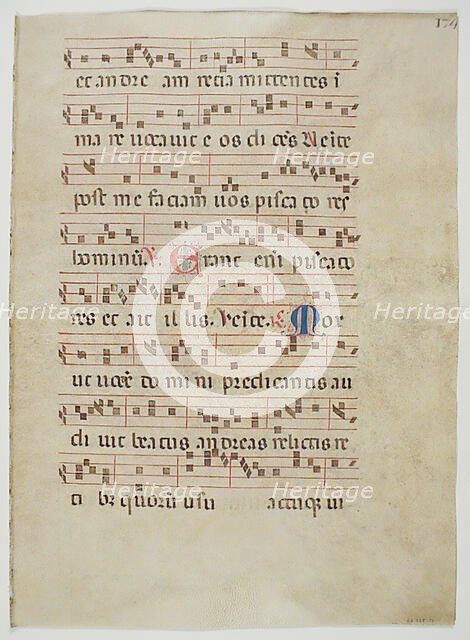 174
et andre am recia mittentes i
ma re vocavit e os dices Veite
post me faciam vos pisca to res
hominũ. V. Erant eni piscato
res et ait il lis. Veite. R. Mor
ut voce domi ni predicantis au
divit beatus andreas relictis re
ti bz quorũ usu actuqz vi
Heritage
Heritage
Heritage
Heritage
Heritage
Heritage
Heritage
Heritage